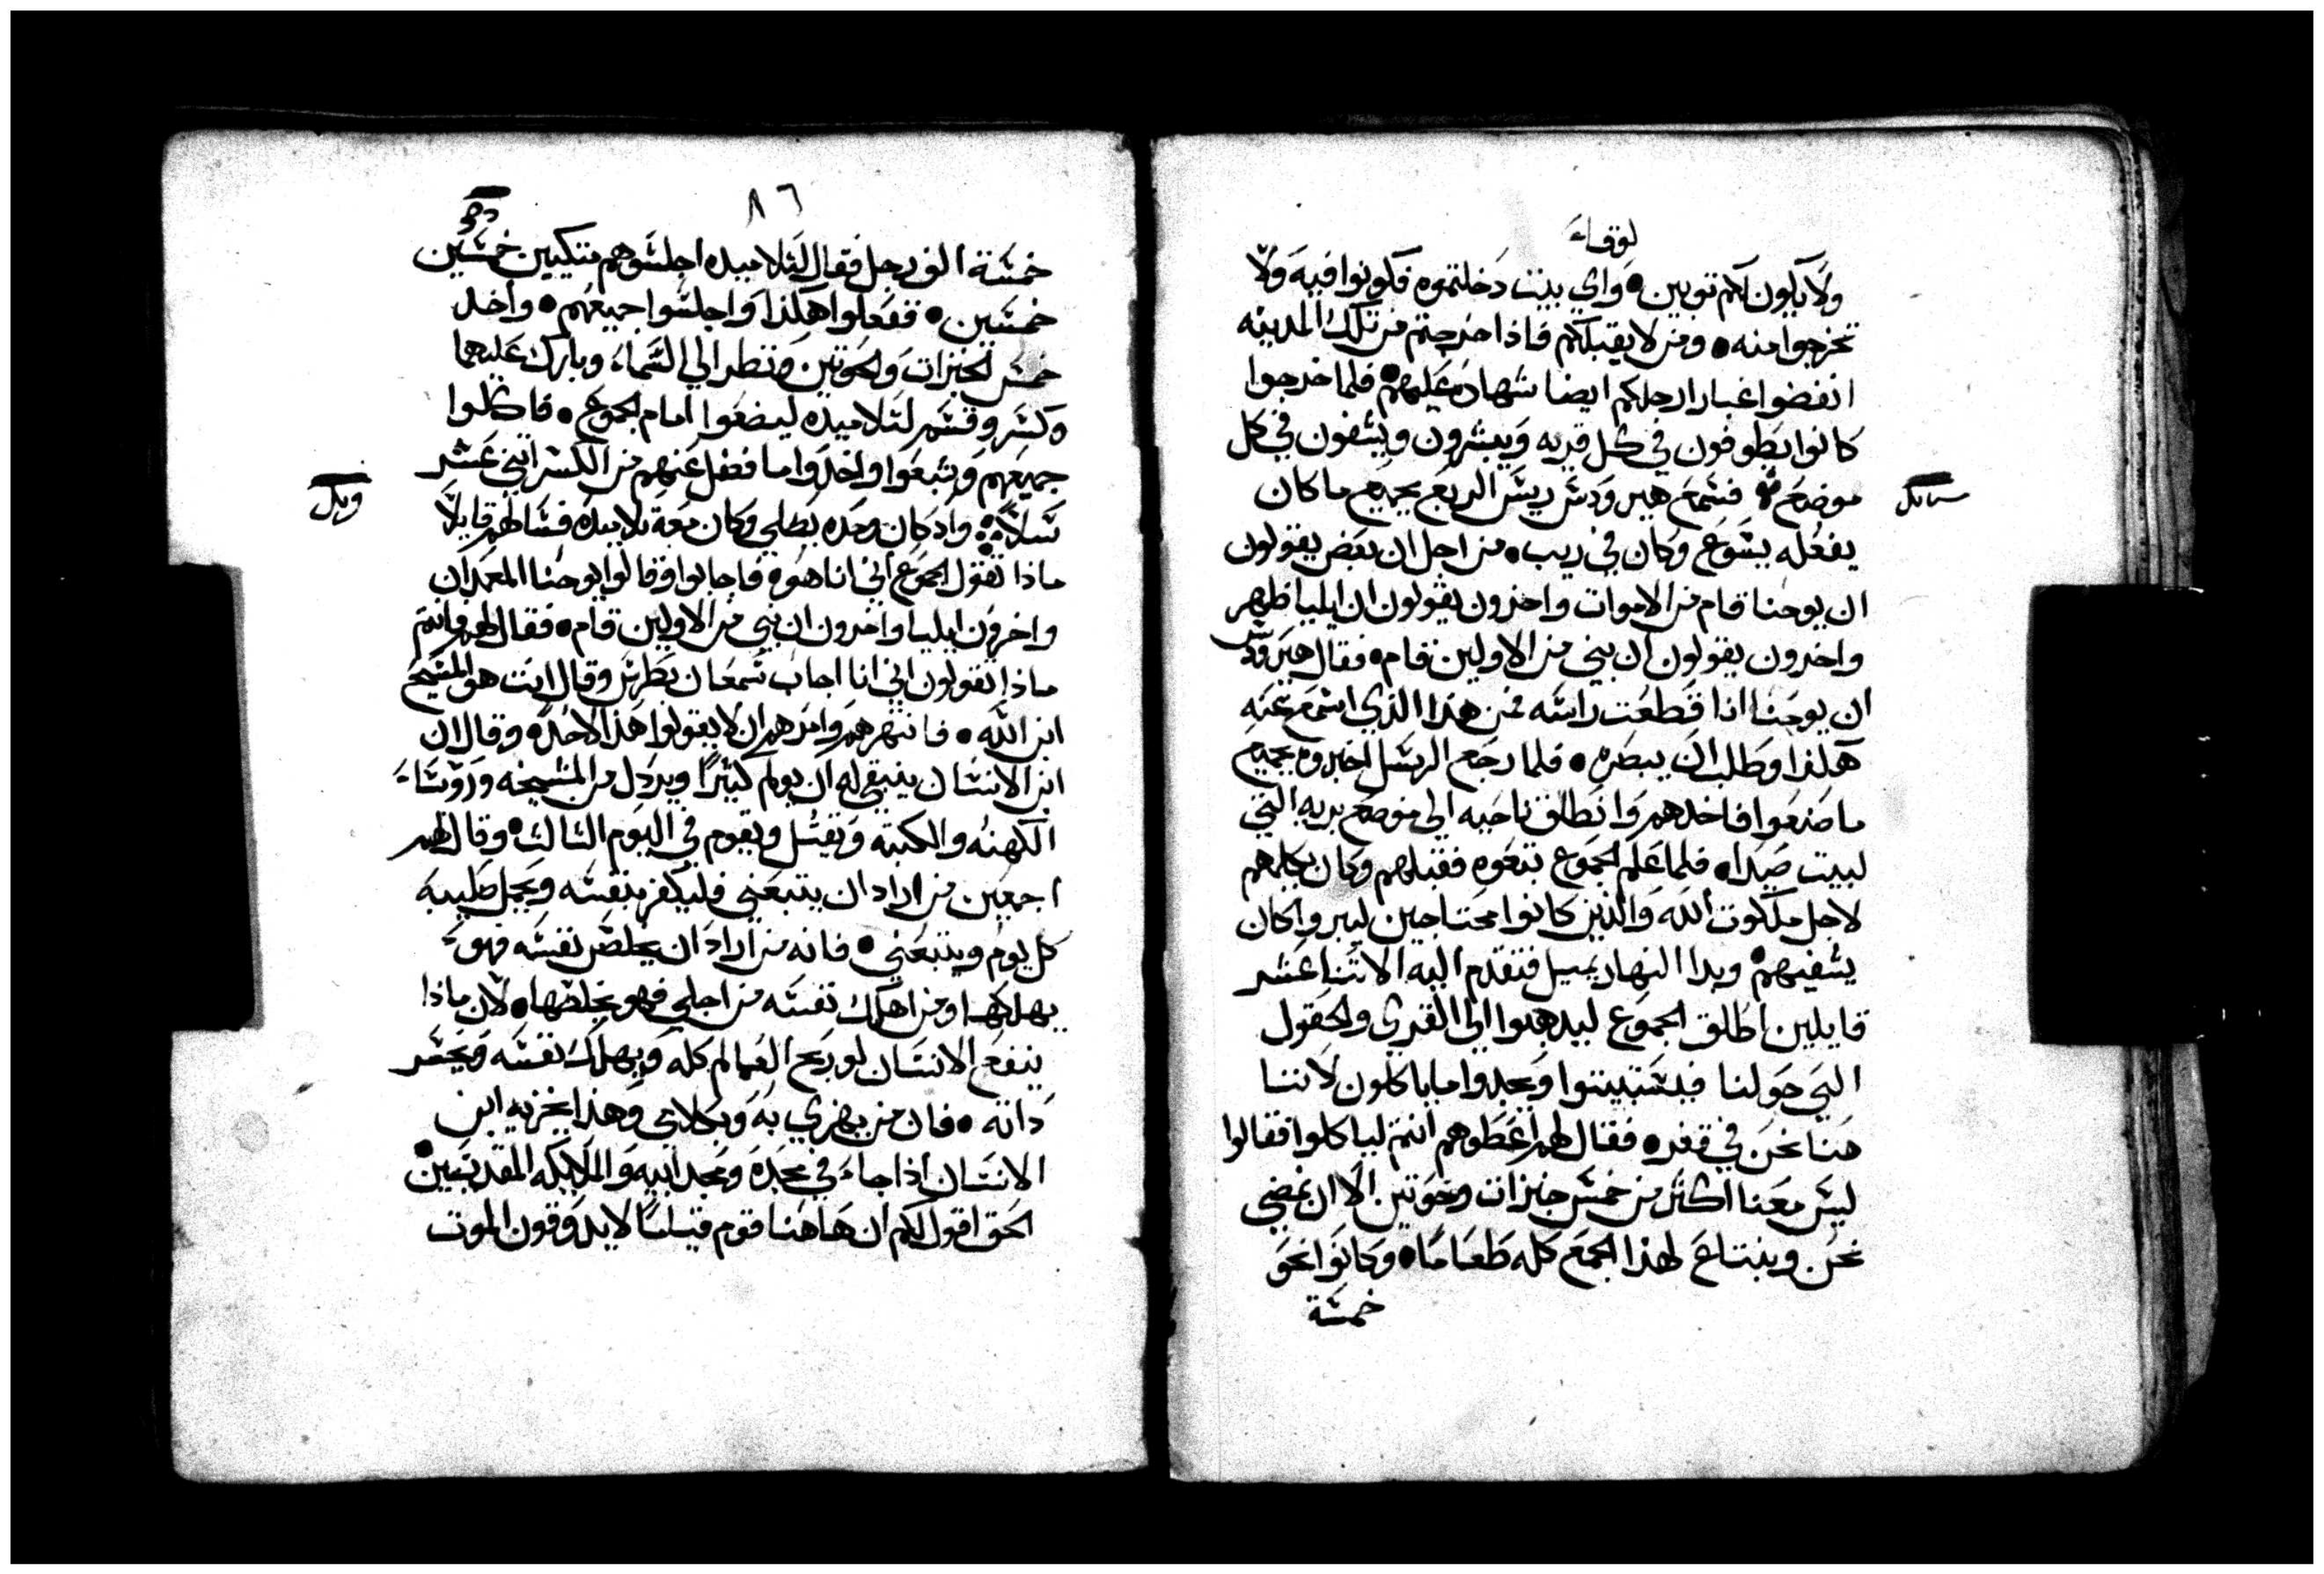 لوقاء
ولا يكون لكم توبين • واي بيت دخلتموه فكونوا فيه ولا
تخرجوا منه • ومن لا يقبلكم فاذا خرجتم من تلك المدينه
انفضوا غبار ارجلكم ايضا شهادة عليهم • فلما خرجوا
كانوا يطوفون في كل قريه ويبشرون ويشفون في كل
موضع فسمع هيرودس ريس الربع بجميع ما كان
يفعله يسوع وكان في ريب • من اجل ان بعض يقولون
ان يوحنا قام من الاموات واخرون يقولون ان ايليا ظهر
واخرون يقولون ان نبي من الاولين قام • فقال هيرودس
ان يوحنا انا قطعت راسه فمن هذا الذي اسمع عنه
هكذا وطلب ان يبصره • فلما رجع الرسل اخبروه بجميع
ما صنعوا فاخدهم وانطلق ناحيه الي موضع بريه التي
لبيت صيدا • فلما علم الجموع تبعوه فقبلهم وكان يكلمهم
لاجل ملكوت الله والذين كانوا محتاجين ليبروا كان
يشفيهم • وبدا النهار يميل فتقدم اليه الاتنا عشر
قايلين اطلق الجموع ليدهبوا الي القري والحقول
التي حولنا فيستبيتوا ويجدوا ما ياكلون لاننا
هنا نحن في قفر • فقال لهم اعطوهم انتم لياكلوا فقالوا
ليس معنا اكتر من خمس خبزات وحوتين الا ان نمضي
نحن ونبتاع لهذا الجمع كله طعاما • وكانوا نحو
خمسة
٨٦
خمسة الف رجل فقال لتلاميده اجلسوهم متكيين خمسين
خمسين • ففعلوا هكذا واجلسوا جميعهم • واخد
خمس الخبزات والحوتين ونظر الي السماء وبارك عليهما
وكسر وقسم لتلاميده ليضعوا امام الجموع • فاكلوا
جميعهم وشبعوا واخدوا ما فضل عنهم من الكسر اتني عشر
سلا واد كان وحده يصلي وكان معه تلاميده فسالهم قايلا
ماذا تقول الجموع اني انا هو • فاجابوا وقالوا يوحنا المعمدان
واخرون ايليا واخرون ان نبي من الاولين قام • فقال لهم فانتم
ماذا تقولون اني انا اجاب سمعان بطرس وقال انت هو المسيح
ابن الله • فانتهرهم وامرهم ان لا يقولوا هذا لاحد • وقال ان
ابن الانسان ينبغي له ان يولم كتيرا ويردل من المشيخه وروساء
الكهنه والكتبة ويقتل ويقوم في اليوم التالت • وقال لهم
اجمعين من اراد ان يتبعني فليكفر بنفسه ويحمل صليبه
كل يوم ويتبعني • فانه من اراد ان يخلص نفسه فهو
يهلكها ومن اهلك نفسه من اجلي فهو يخلصها • لان ماذا
ينفع الانسان لو ربح العالم كله ويهلك نفسه ويخسر
داته • فان من يهزي به وبكلامي وهذا يخزيه ابن
الانسان اذا جاء في مجده ومجد ابيه والملايكه المقدسين •
الحق اقول لكم ان هاهنا قوم قياما لا يدوقون الموت